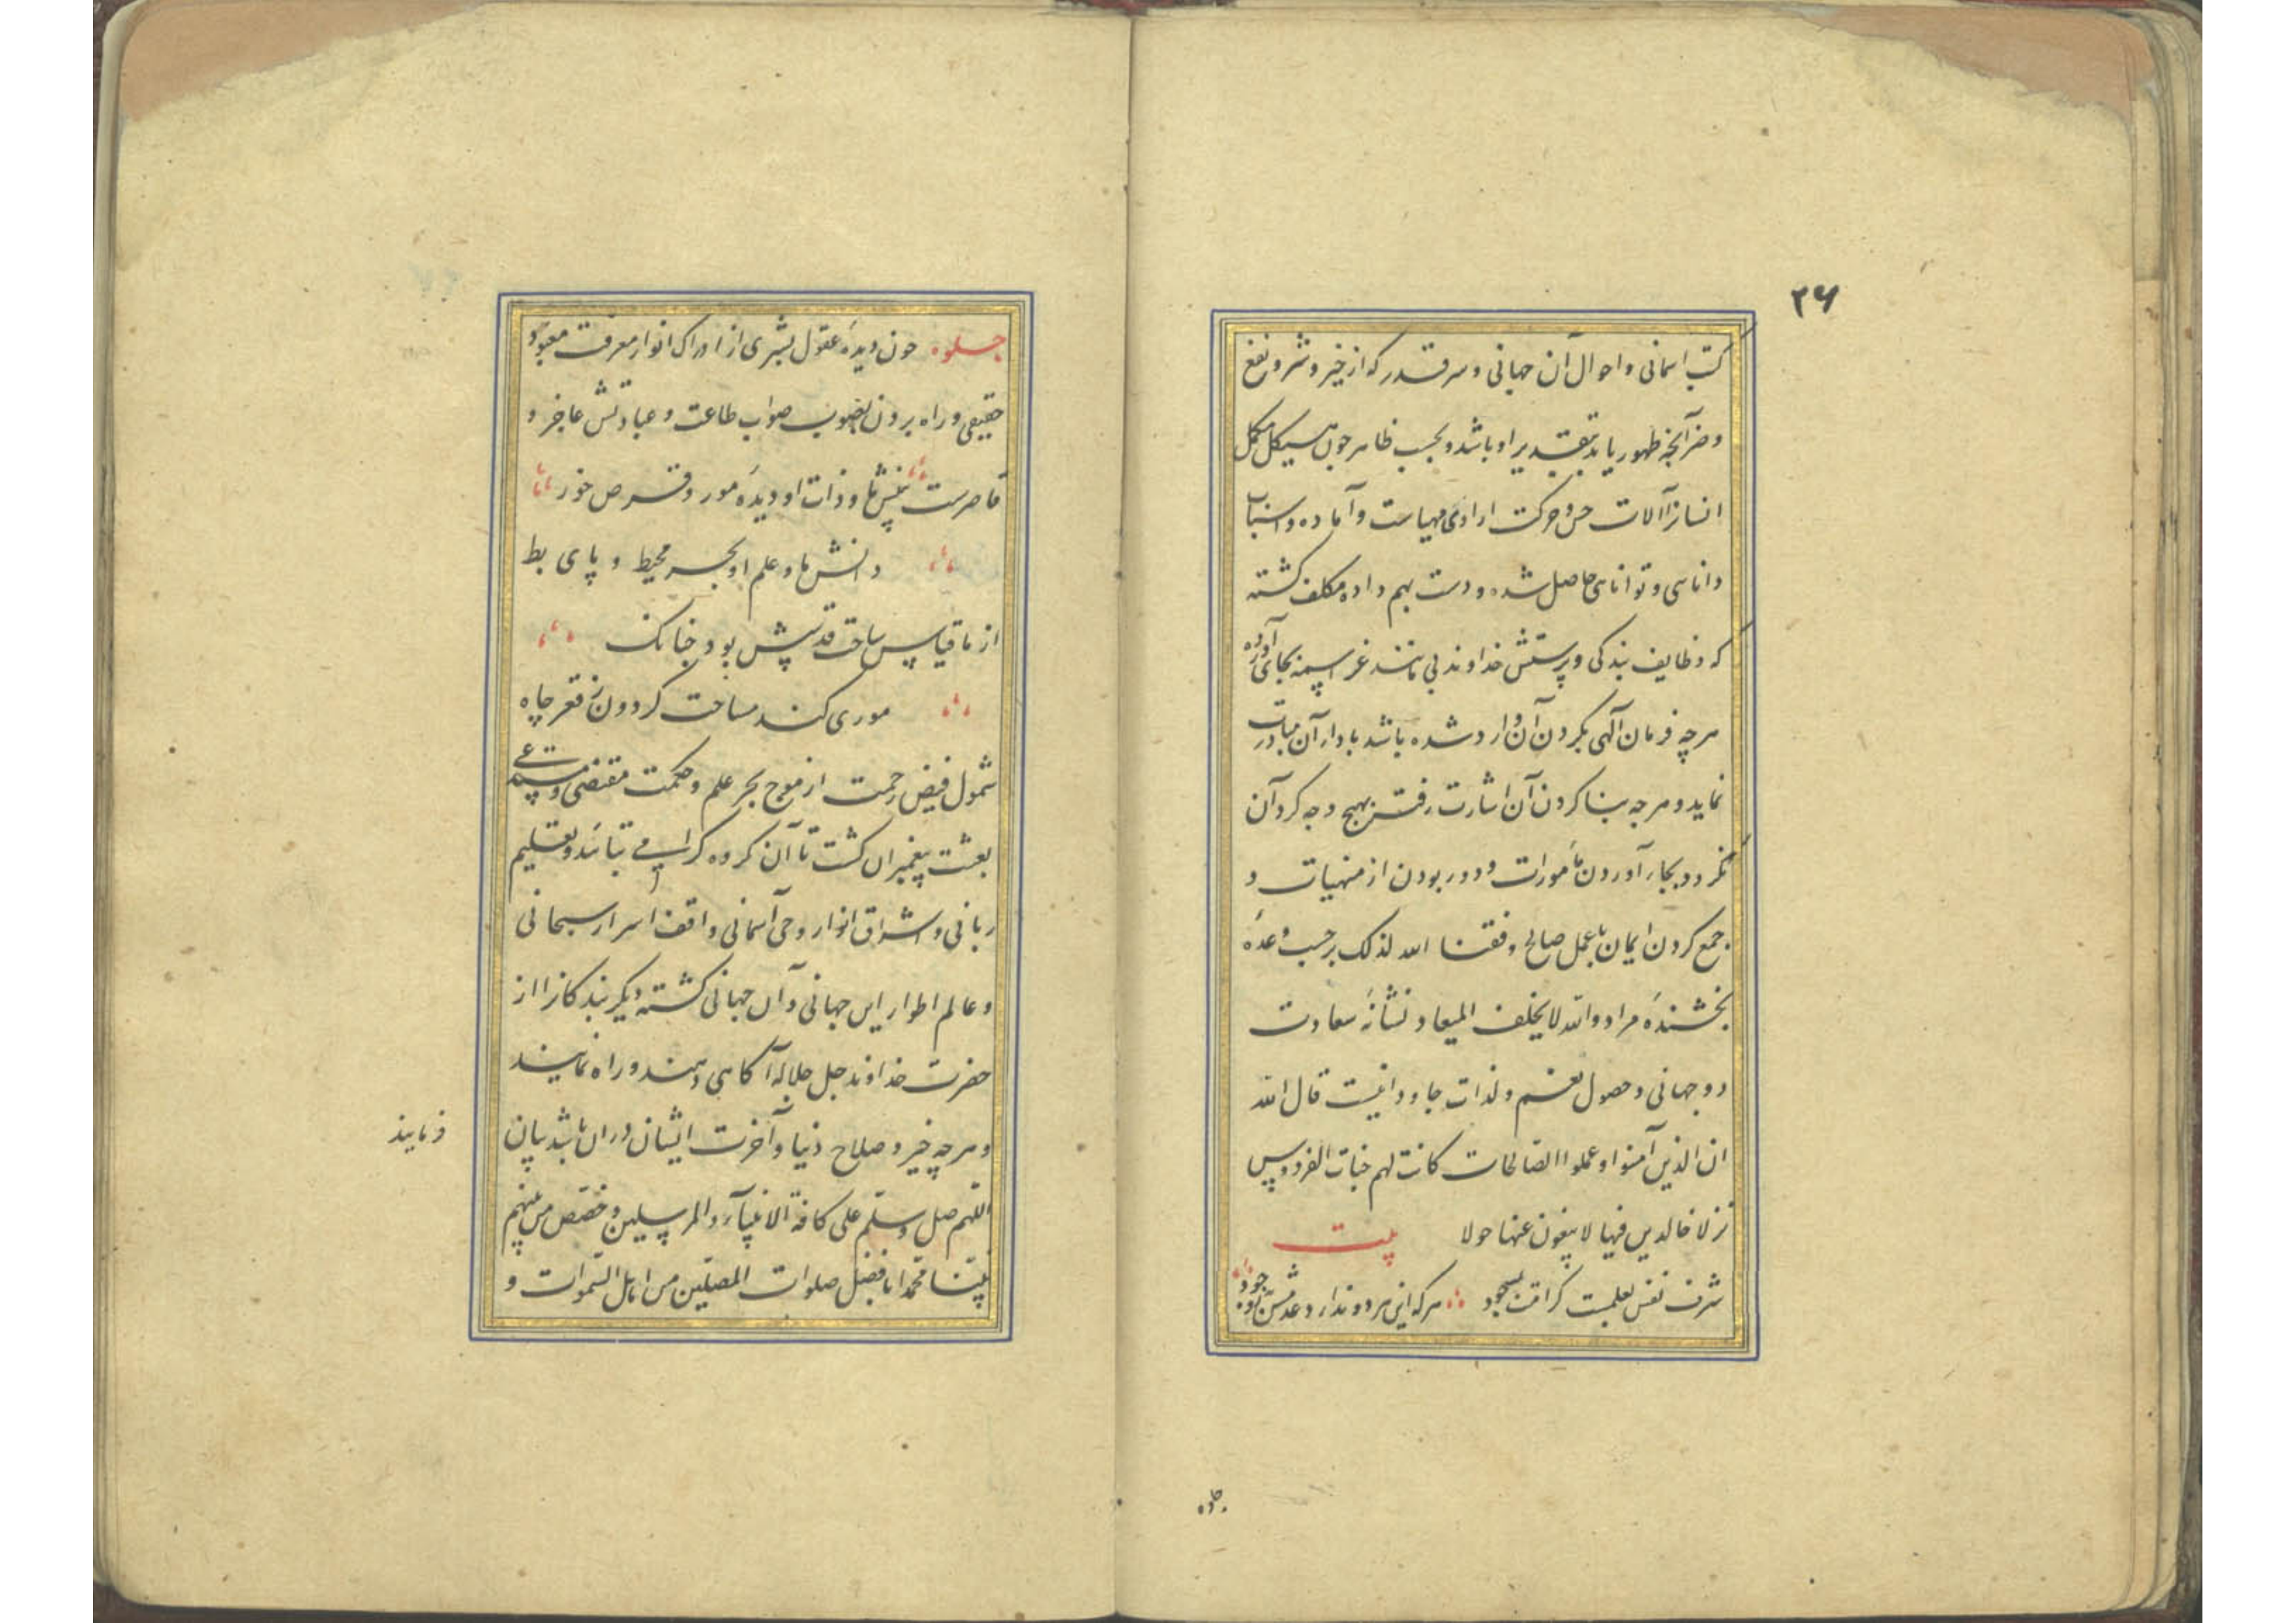 ۲۶
کتب اسمانی و احوال آن جهانی و هر قدر که از خیر و شر و نفع
و ضر آنچه ظهور یابد بتقدیر او باشد و بحسب ظاهر چون هیکل مکمل
انسان از آلات حس و حرکت ارادی مهیاست و آماده و اسباب
دانایی و توانایی حاصل شده و دست بهم داده مکلف کشته
که وظایف بندکی و پرستش خداوند بی مانند عز اسمه بجای آورده
هرچه فرمان آلهی بکردن آن وارد شده باشد بادای آن مبادرت
نماید و هرچه بنا کردن آن اشارت رفته بهیچ وجه کرد آن
نکردد و بجای آوردن مأمورات و دور بودن از منهیات و
جمع کردن ایمان با عمل صالح وفقنا الله لذلک برحسب وعدهٔ
بخشندهٔ مراد والله لا یخلف المیعاد نشانهٔ سعادت
دو جهانی و حصول نعیم و لذات جاودانیست قال الله
ان الذین آمنوا و عملوا الصالحات کانت لهم جنات الفردوس
نزلا خالدین فیها لا یبغون عنها حولا بیت
شرف نفس بعلمست و کرامت بسجود هرکه این هر دو ندارد عدمش به ز وجود
جلوه
جلوه چون دیدهٔ عقول بشری از ادراک انوار معرفت معبود
حقیقی و راه بردن بصوب صواب طاعت و عبادتش عاجز و
قاصرست بینش ما و ذات او دیدهٔ مور و قرص خور
دانش ما و علم او بحر محیط و پای بط
از ما قیاس ساحت قدسش بود چنانک
موری کند مساحت کردون ز قعر چاه
شمول فیض رحمت از موج بحر علم و حکمت مقتضی و مستدعی
بعثت پیغمبران کشت تا آن کروه کرامی بتأیید و تعلیم
ربانی و اشراق انوار وحی آسمانی واقف اسرار سبحانی
و عالم اطوار این جهانی و آن جهانی کشته دیکر بندکانرا از
حضرت خداوند جل جلاله آکاهی دهند و راه نمایند
و هرچه خیر و صلاح دنیا و آخرت ایشان در ان باشد بیان
فرمایند
اللهم صل و سلم علی کافة الانبیآء و المرسلین و خصص من بینهم
نبینا محمدا بافضل صلوات المصلین من اهل السموات و